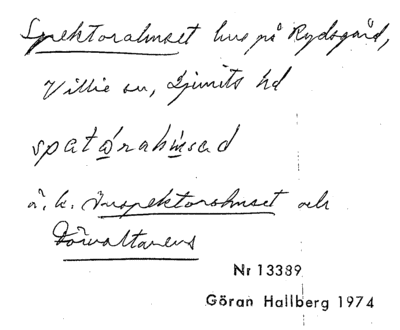 Spektorahuset hus på Rydsgård,
Villie sn, Ljunits hd
spatárahu̇sad
ä. k. Inspektorshuset och
Förvaltarens
Nr 13389
Göran Hallberg 1974